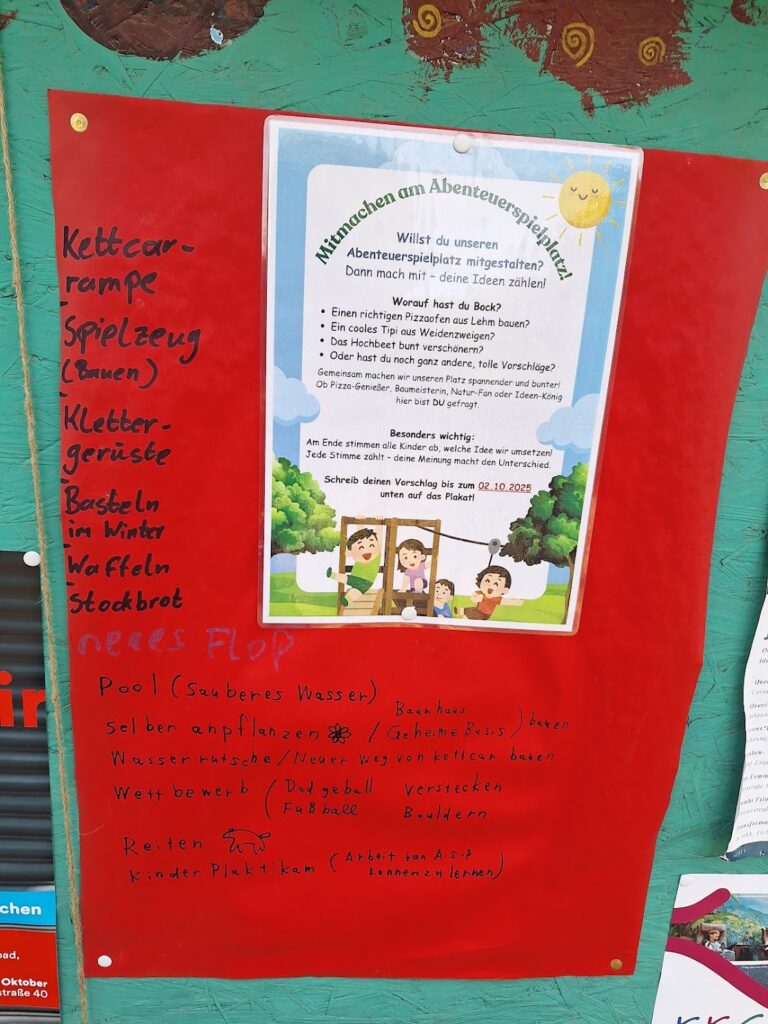 Mitmachen am Abenteuerspielplatz!
Willst du unseren
Abenteuerspielplatz mitgestalten?
Dann mach mit - deine Ideen zählen!
Worauf hast du Bock?
• Einen richtigen Pizzaofen aus Lehm bauen?
• Ein cooles Tipi aus Weidenzweigen?
• Das Hochbeet bunt verschönern?
• Oder hast du noch ganz andere, tolle Vorschläge?
Gemeinsam machen wir unseren Platz spannender und bunter!
Ob Pizza-Genießer, Baumeisterin, Natur-Fan oder Ideen-König
hier bist DU gefragt.
Besonders wichtig:
Am Ende stimmen alle Kinder ab, welche Idee wir umsetzen!
Jede Stimme zählt - deine Meinung macht den Unterschied.
Schreib deinen Vorschlag bis zum 02.10.2025
unten auf das Plakat!
Kettcar-
rampe
- Spielzeug
(Bauen)
- Kletter-
gerüste
- Basteln
im Winter
- Waffeln
- Stockbrot
neues Flop
Pool (Sauberes Wasser)
Selber anpflanzen / Baumhaus
Geheime Basis) bauen
Wasserrutsche / Neuer Weg von kettcar bauen
Wettbewerb (Dodgeball Verstecken
Fußball Bouldern
Reiten
Kinder Plaktikam (Arbeit von A.S.P
kennenzulernen)
chen
Oktober
straße 40